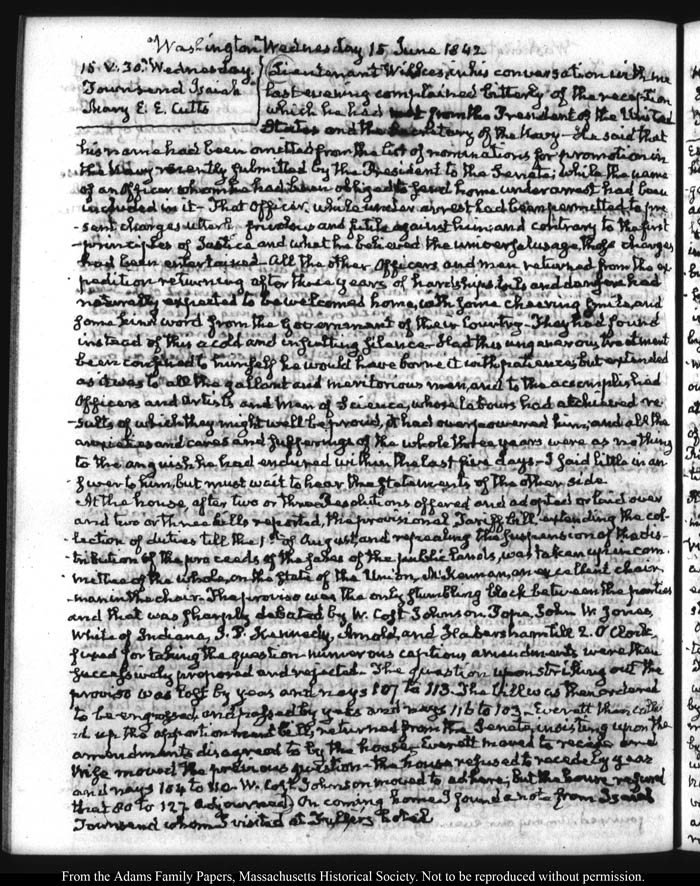 Washington Wednesday 15 June 1842
15 V. 30. Wednesday.
Townsend Isaiah
Mary E. E. Cutts
Lieutenant Wilkes, in his conversation with me
last evening complained bitterly of the reception
which he had met from the President of the United
States and the Secretary of the Navy— He said that
his name had been omitted from the list of nominations for promotion in
the Navy recently submitted by the President to the Senate; while the name
of an Officer whom he had been obliged to send home under arrest had been
included in it— That Officer, while under arrest had been permitted to pre
sent charges frivolous and futile against him; and contrary to the first
principles of Justice and what he believed the universal usage, those charges
had been entertained. All the other Officers and men returned from the ex
pedition returning after three years of hardships toils and dangers had
naturally expected to be welcomed home, with some cheering smile, and
some kind word from the Government of their Country— They had found
instead of this a cold and insulting silence— Had this ungenerous treatment
been confined to himself he would have borne it with patience; but extended
as it was to all the gallant and meritorious men, and to the accomplished
Officers and Artists and men of Science, whose labours had atchieved re
sults of which they might well be proud, it had overpowered him; and all the
anxieties and cares and sufferings of the whole three years were as nothing
to the anguish he had endured within the last five days— I said little in an
swer to him, but must wait to hear the Statements of the other side
At the house, after two or three Resolutions offered and adopted or laid over
and two or three bills reported, the provisional Tariff bill, extending the col
lection of duties till the 1st of August, and repealing the suspension of the dis
tribution of the proceeds of the sales of the public lands, was taken up in com
mittee of the whole, on the State of the Union, McKennan, an excellent chair
man in the chair. The proviso was the only stumbling block between the parties
and that was sharply debated by W. Cost Johnson. Pope, John W. Jones,
White of Indiana, J. P. Kennedy, Arnold, and Habersham till 2. O'Clock,
fixed for taking the question. numerous captious amendments were then
successively proposed and rejected— The question upon striking out the
proviso was lost by yeas and nays 107 to 113. The bill was then ordered
to be engrossed, and passed by yeas and nays 116 to 103— Everett then call
ed up the apportionment bill, returned from the Senate, insisting upon the
amendments disagreed to by the house; Everett moved to recede and
Wise moved the previous question— the house refused to recede by yeas
and nays 104 to 110— W. Cost Johnson moved to adhere; but the house refused
that 80 to 127 Adjourned. On coming home I found a note from Isaiah
Townsend whom I visited at Fuller's hotel
From the Adams Family Papers, Massachusetts Historical Society. Not to be reproduced without permission.